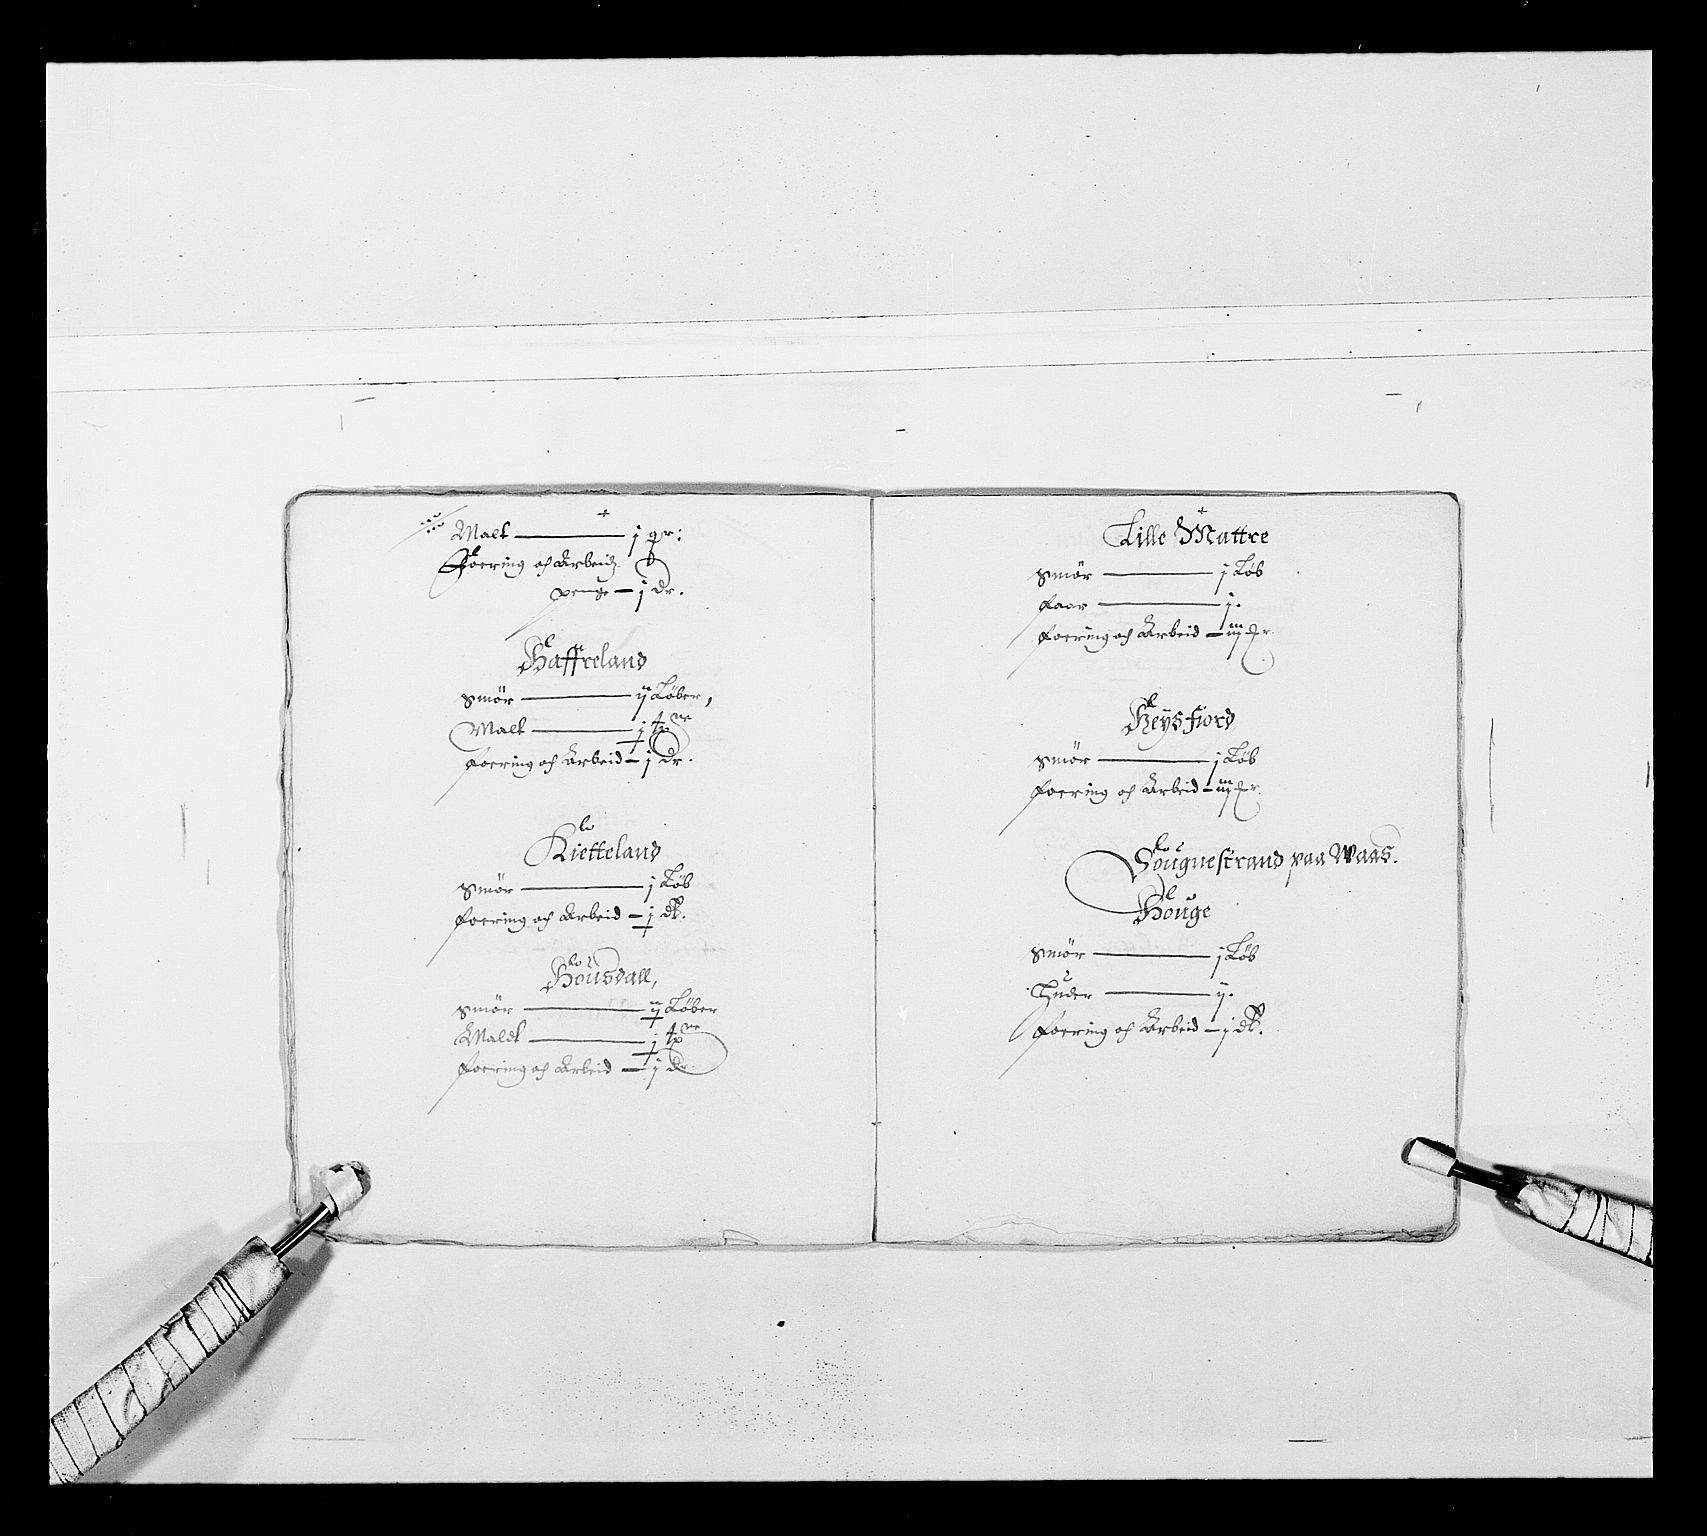 Malt — j qr:
Foering och Arbeidz
penge — j dr.
Haffreland
Smör — ij Løber,
Malt — j
foering och Arbeid — j dr.
Kietteland
Smör — j Løb
foering och Arbeid — j
Housdall,
Smör — ij Løber
Maldt — j
foering och Arbeid — j dr
Lille Mattre
Smör — j Løb
faar — j.
foering och Arbeid — iij
Heysfiord
Smör — j Løb
foering och Arbeid — iij
Sougnestrand paa Waas.
Houge
Smör — j Løb
Huder — ij.
foering och Arbeid — j